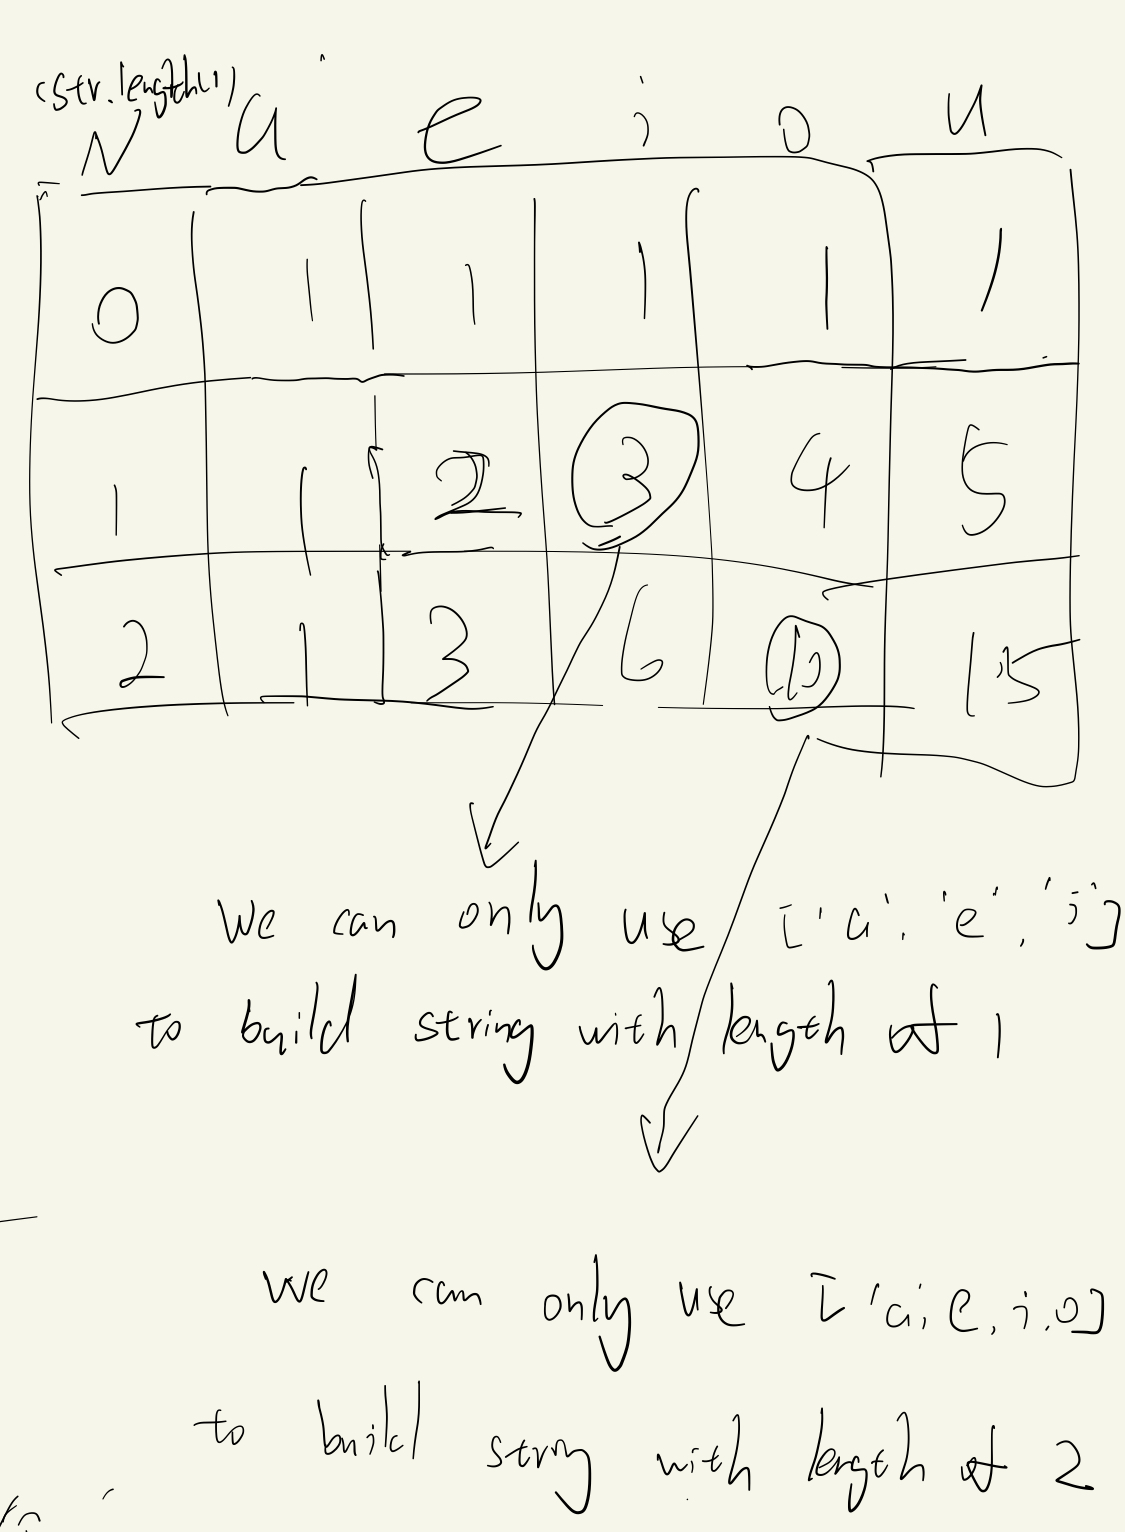 (str.length())
N a e i o u
0 1 1 1 1 1
1 1 2 3 4 5
2 1 3 6 10 15
We can only use ['a', 'e', 'i']
to build string with length of 1
we can only use ['a, e, i, o]
to build string with length of 2